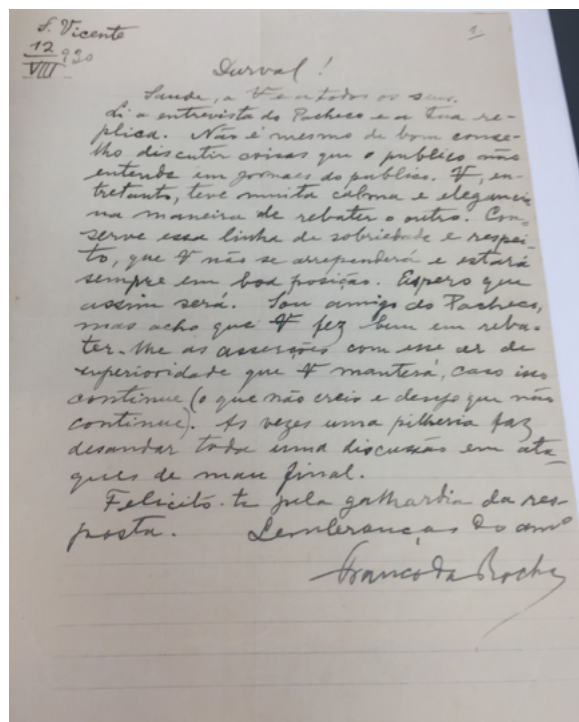 S. Vicente
12
VIII 920
1.
Durval!
Saude, a V e a todos os seus.
Li a entrevista do Pacheco e a tua re-
plica. Não é mesmo de bom conse-
lho discutir coisas que o publico não
entende em jornaes do publico. V, en-
tretanto, teve muita calma e elegancia
na maneira de rebater o outro. Con-
serve essa linha de sobriedade e respei-
to, que V não se arrependerá e estará
sempre em boa posição. Espero que
assim será. Sou amigo do Pacheco,
mas acho que V fez bem em reba-
ter-lhe as asserções com esse ar de
superioridade que V manterá, caso isso
continue (o que não creio e desejo que não
continue). As vezes uma pilheria faz
desandar toda uma discussão em ata-
ques de mau final.
Felicito-te pela galhardia da res-
posta. Lembranças do amº
Franco da Rocha